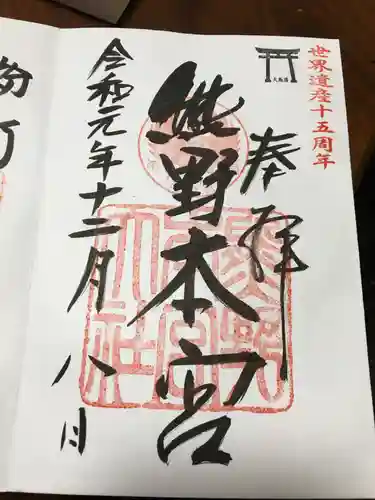 世界遺産十五周年
大鳥居
奉拝
熊野本宮
令和元年十二月八日